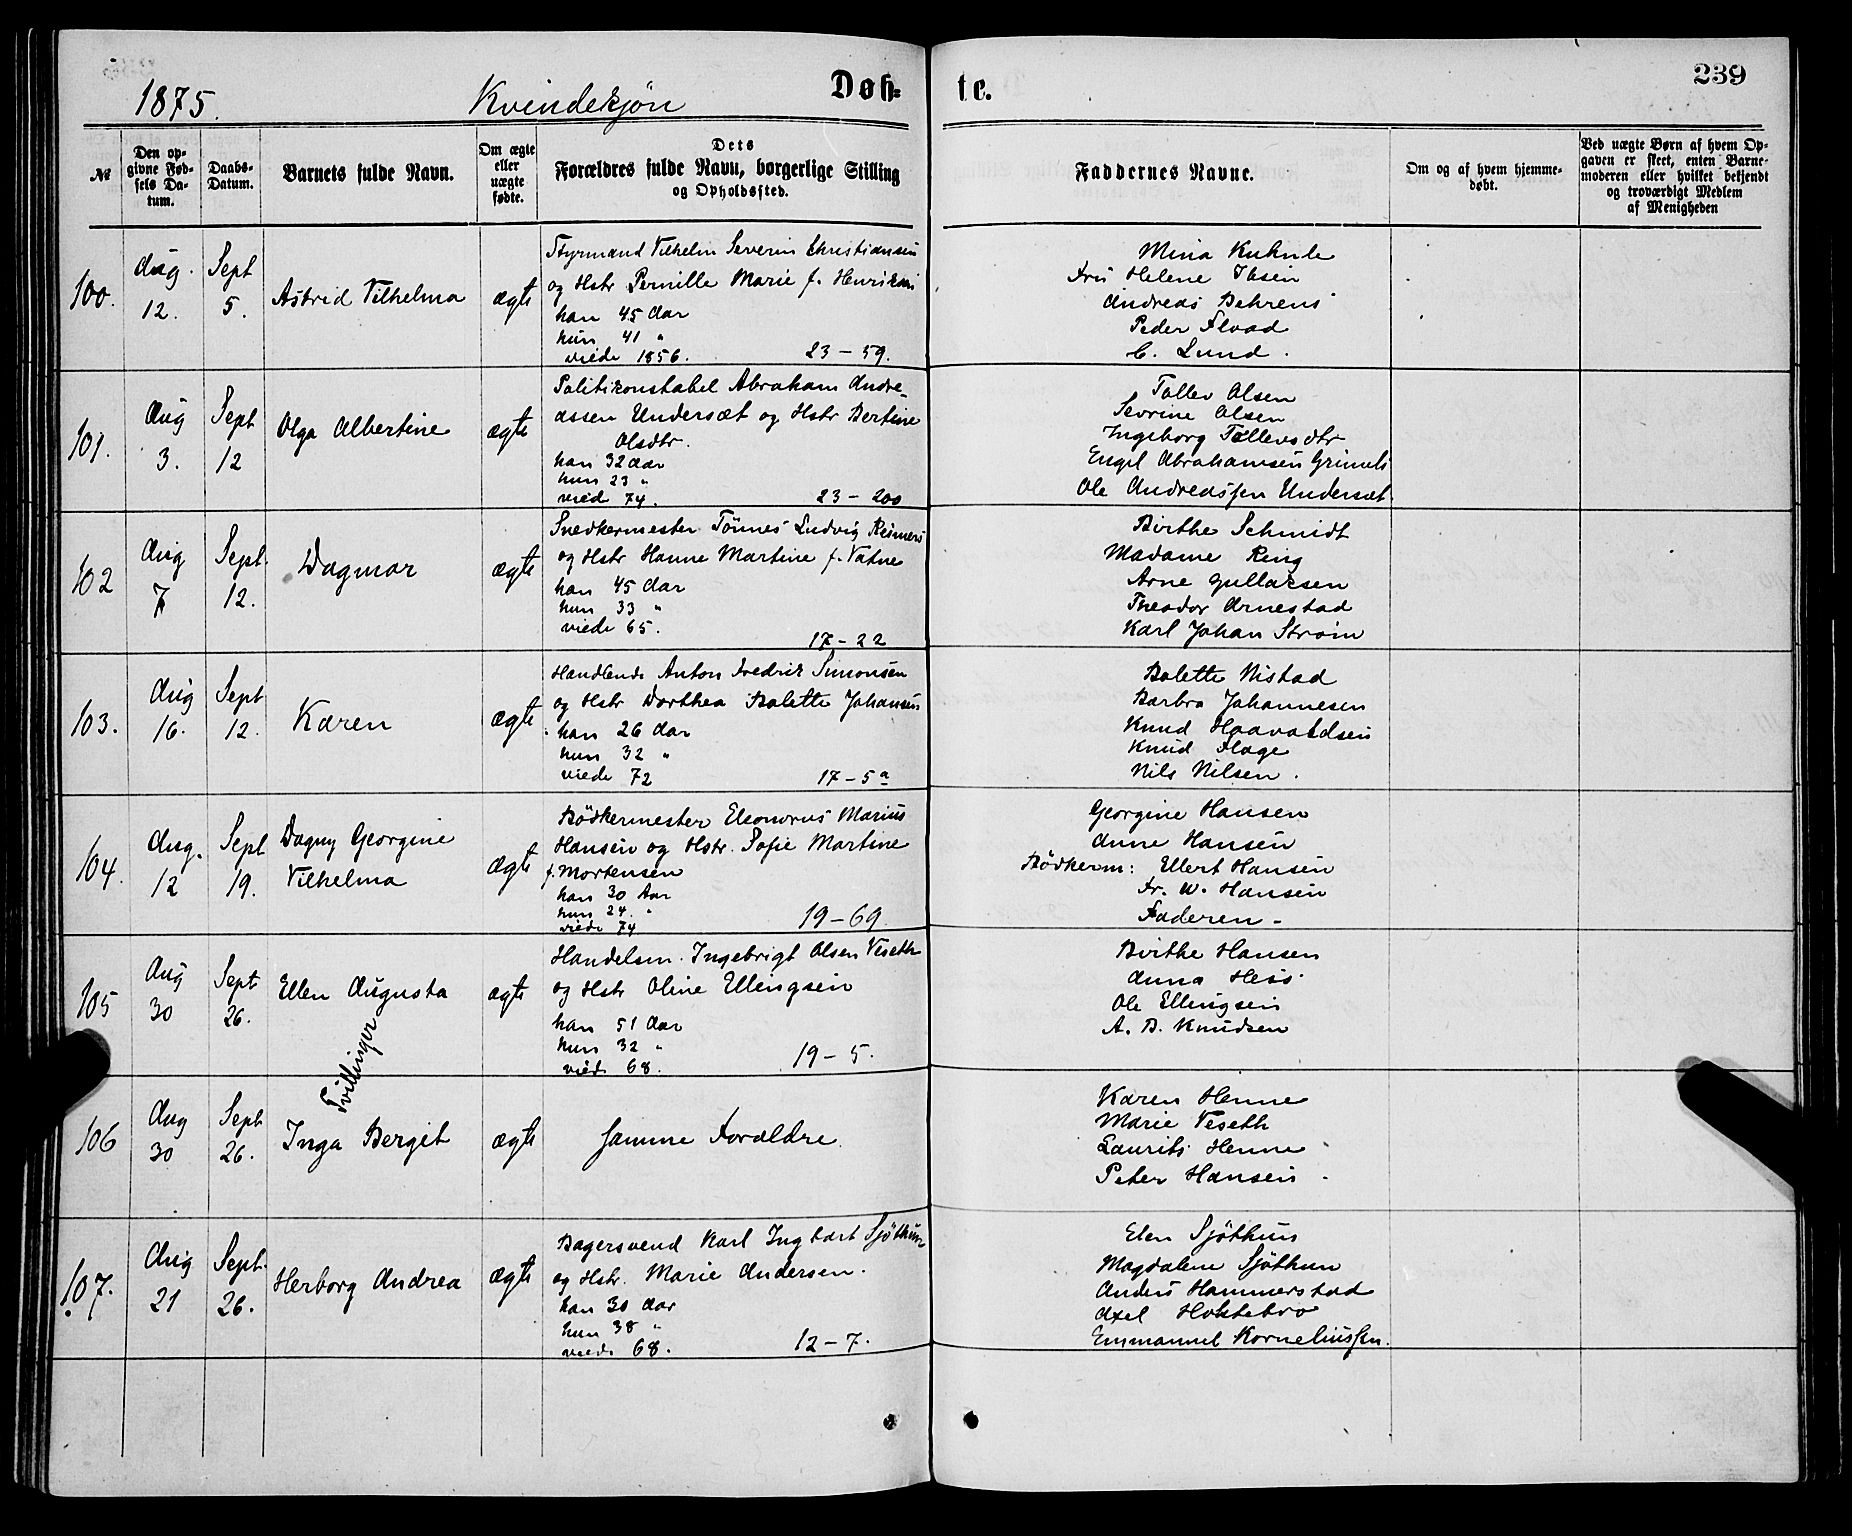 1875. Kvindekjøn Døb= te. 239
№ Den op-givne Fød-sels Da-tum. Daabs-Datum. Barnets fulde Navn. Om ægte eller uægte fødte. Dets Forældres fulde Navn, borgerlige Stilling og Opholdssted. Faddernes Navne. Om og af hvem hjemme-døbt. Ved uægte Børn af hvem Op-gaven er skeet, enten Barne-moderen eller hvilket bekjendt og troværdigt Medlem af Menigheden
100. Aug. 12. Sept 5. Astrid Vilhelma ægte
Styrmand Vilhelm Severin Christiansen
og Hstr Pernille Marie f. Henriksen
han 45 Aar
hun 41 "
viede 1856. 23-59.
Mina Kuhnle
Fru Helene Ibsen
Andreas Behrens
Peder Flood
C. Lund.
101. Aug 3. Sept 12 Olga Albertine ægte
Politikonstabel Abraham Andre-
assen Undersæt og Hstr Bertine
Olsdtr.
han 32 Aar
hun 23 "
vied 74. 23-200
Tollev Olsen
Sevrine Olsen
Ingeborg Tollevsdtr
Engel Abrahamsen
Ole Andreassen Undersæt
102 Aug 7 Sept. 12. Dagmar ægte
Snedkermester Tönnes Ludvig Reimers
og Hstr Hanne Martine f. Vatne
han 45 Aar
hun 33 "
viede 65. 17-22
Birthe Schmidt
Madame Ring
Arne Gullaksen
Theodor Arnestad
Karl Johan Strøm
103. Aug 16. Sept 12. Karen ægte
Handlende Anton Fredrik Simonsen
og Hstr Dorthea Bolette Johansen
han 26 Aar
hun 32 "
viede 72 17-5a
Bolette Nistad
Barbra Johannesen
Knud Haavaldsen
Knud Hage
Nils Nilsen.
104. Aug. 12 Sept 19. Dagny Georgine
Vilhelma ægte
Bödkermester Eleonorus Marius
Hansen og Hstr. Sofie Martine
f. Mortensen
han 30 Aar
hun 24. "
viede 74 19-69.
Georgine Hansen
Anne Hansen
Bödkerm: Ellert Hansen
Fr. W. Hansen
Faderen -
105 Aug 30 Sept 26. Ellen Augusta ægte
Handelsm. Ingebrigt Olsen Veseth
og Hstr Oline Ellingsen
han 51 Aar
hun 32 "
viede 68. 19-5.
Birthe Hansen
Anna Hess
Ole Ellingsen
A. B. Knudsen
Tvillinger
106 Aug 30 Sept 26. Inga Bergit ægte
Samme Forældre.
Karen Henne
Marie Veseth
Laurits Henne
Peter Hansen.
107. Aug 21 Sept. 26. Herborg Andrea ægte
Bagersvend Karl Ingbart Sjöthun
og Hstr. Marie Andersen.
han 30 Aar
hun 38 "
viede 68. 12-7.
Elen Sjöthun
Magdalene Sjöthun
Anders Hammerstad
Axel Holtebro
Emmanuel Korneliussen.